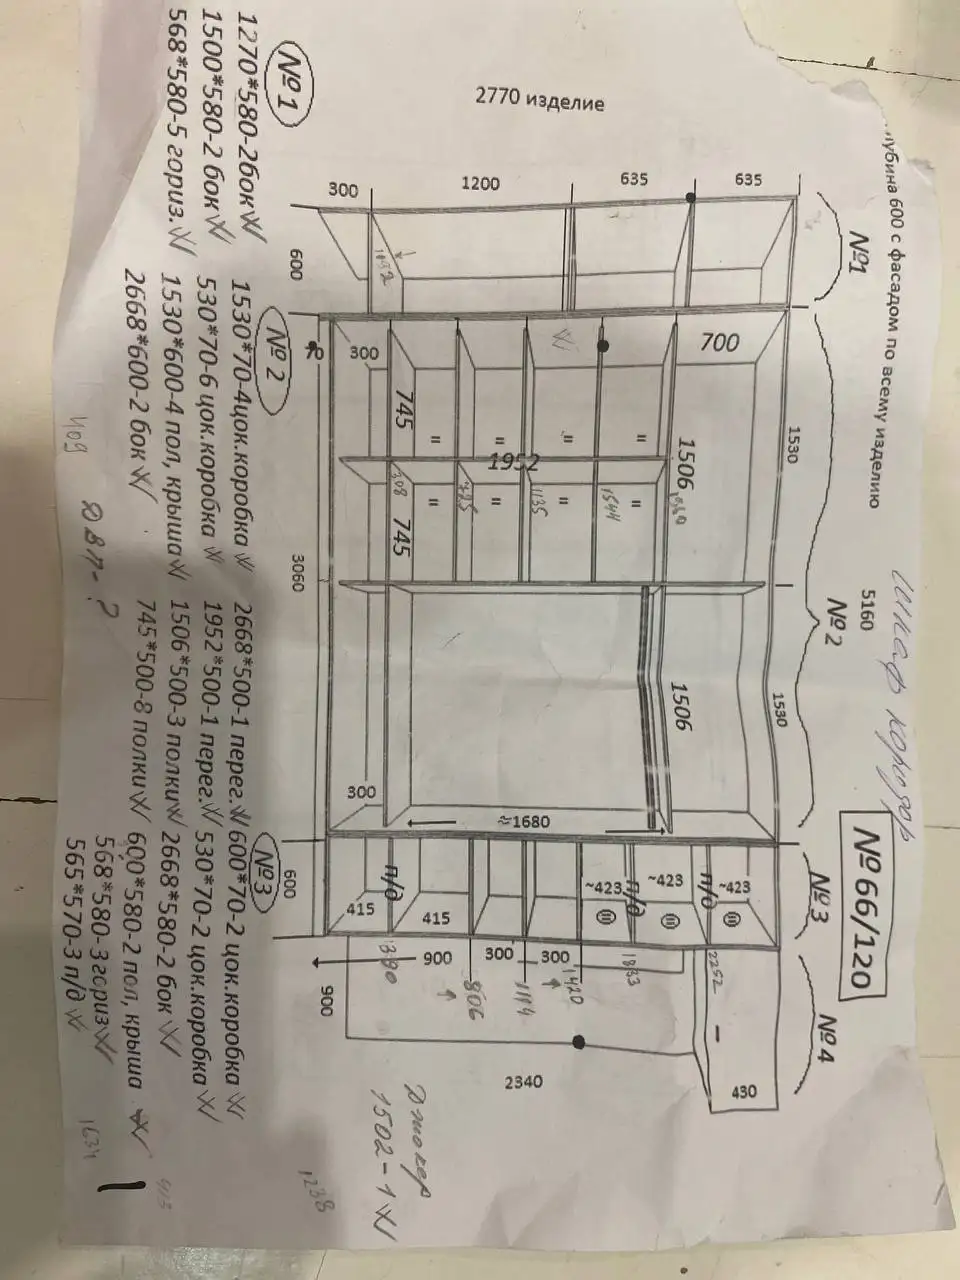 лубина 600 с фасадом по всему изделию
шкаф коридор
№66/120
5160
№1
№2
№3
№4
1530
1530
2770 изделие
635
635
1200
300
600
700
1506
1506
745
745
1952
"
"
"
"
"
"
"
"
308
725
1135
1544
1032
300
70
3060
300
≈1680
600
~423
~423
~423
п/д
п/д
п/д
415
415
900
300
300
390
806
1114
1420
1833
2252
900
2340
430
Джокер
1502-1
1238
№1
1270*580-2бок
1500*580-2 бок
568*580-5 гориз.
№2
1530*70-4цок.коробка
530*70-6 цок.коробка
1530*600-4 пол, крыша
2668*600-2 бок
2668*500-1 перег.
1952*500-1 перег.
1506*500-3 полки
745*500-8 полки
№3
600*70-2 цок.коробка
530*70-2 цок.коробка
2668*580-2 бок
600*580-2 пол, крыша
568*580-3гориз
565*570-3 п/д
409
ДВП-?
1634